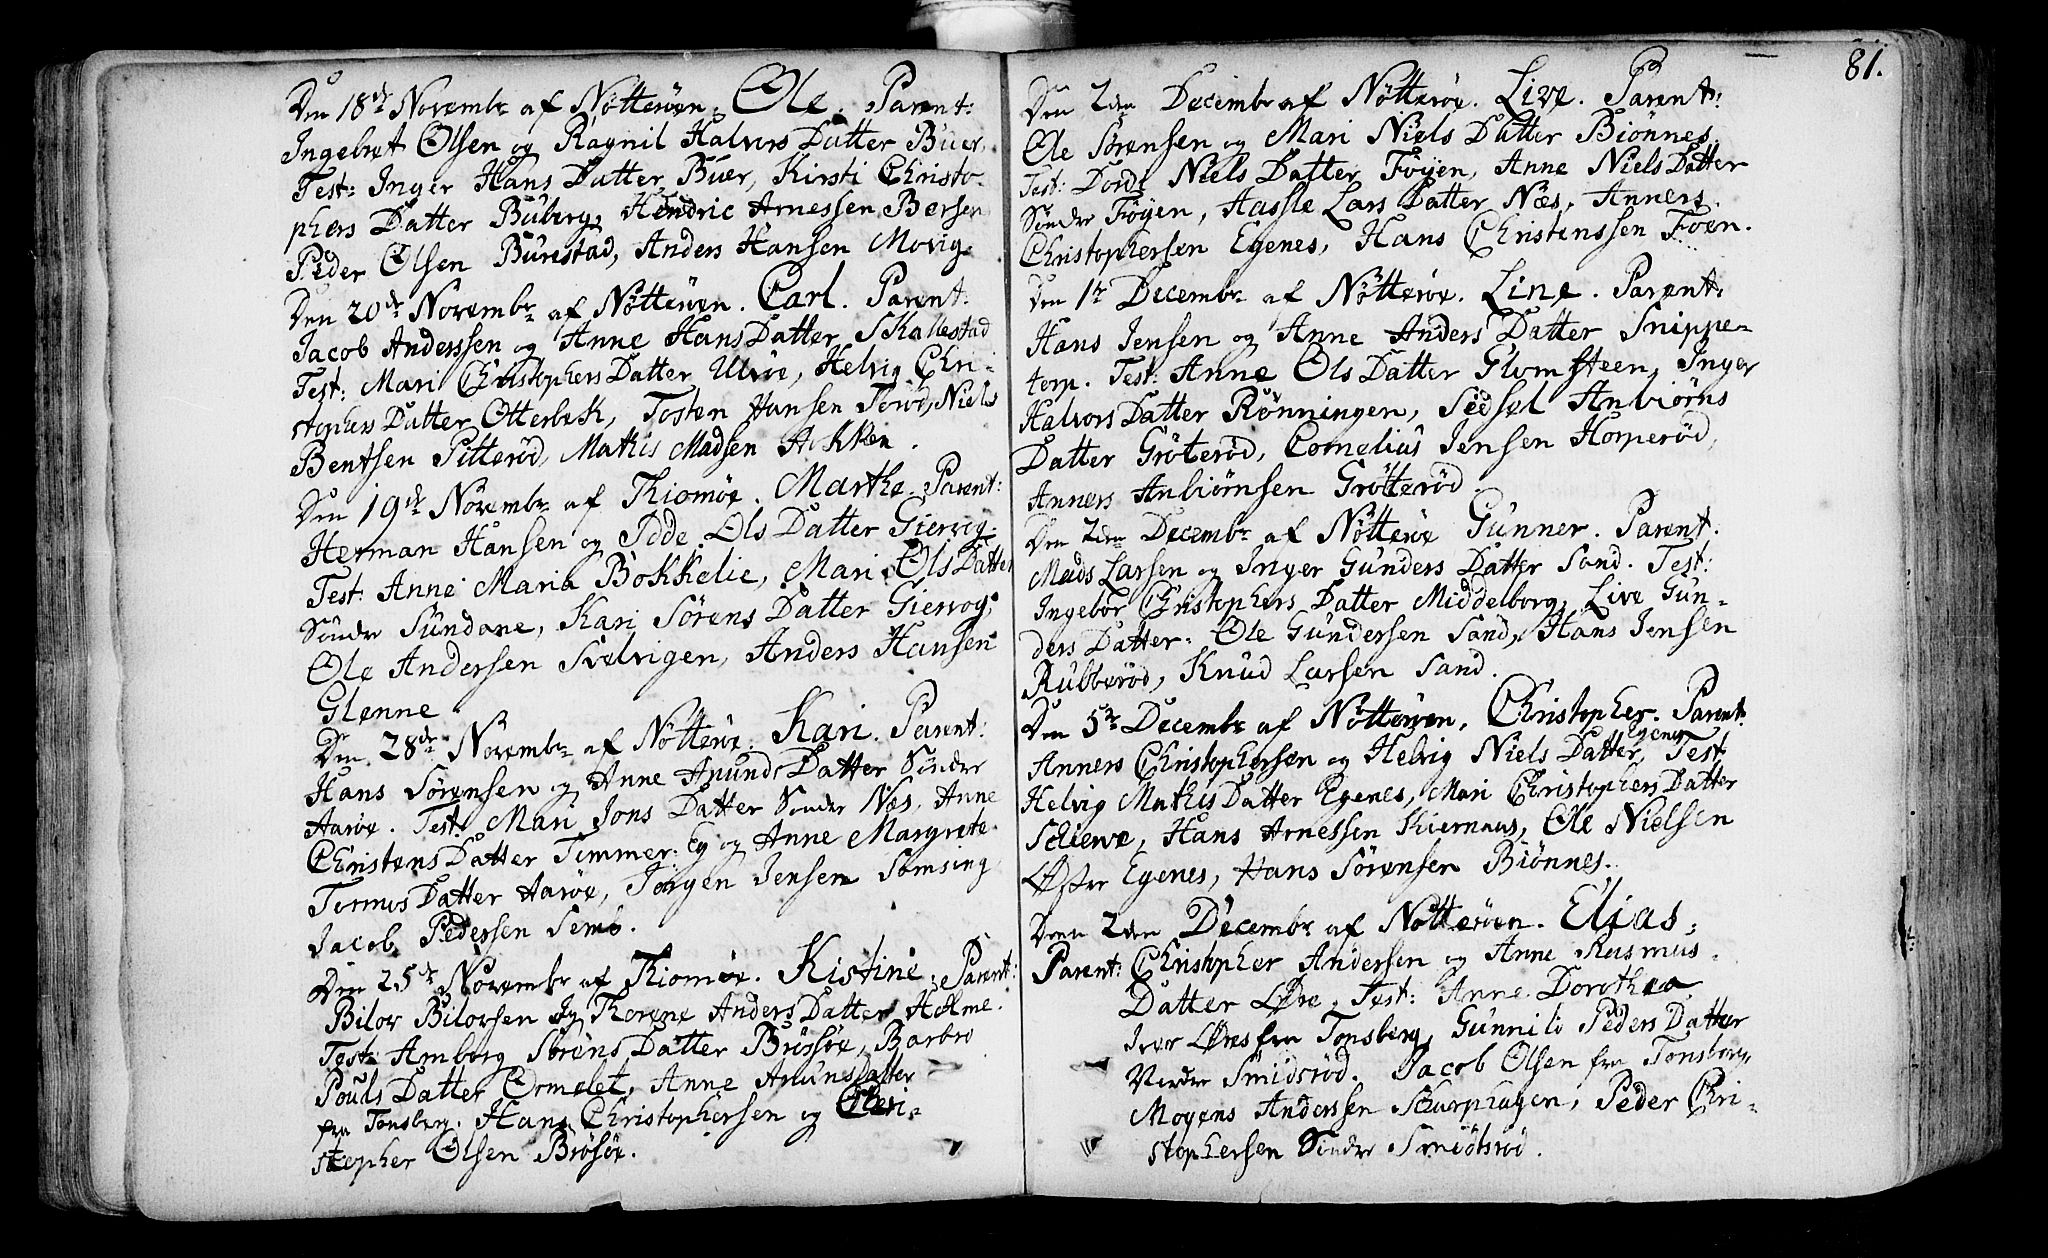 Den 18de Novembr af Nötteröen. Ole. Parent:
Ingebret Olsen og Ragnil Halvors Datter Buer,
Test: Inger Hans Datter Buer, Kirsti Christo-
phers Datter Buberg, Hendric Arnessen Bersen
Peder Olsen Burestad, Anders Hansen Movig.
Den 20de Novembr af Nötteröen. Carl. Parent:
Jacob Anderssen og Anne HansDatter Skallestad
Test: Mari ChristophersDatter Ulvöe, Helvig Chri-
stophers Datter Otterbek, Tosten Hansen Niels
Bentsen Pitteröd, Mathis Madsen Aokken.
Den 19de Novembr af Thiomöe. Marthe. Parent:
Herman Hansen og Idde Ols Datter Giervig.
Test: Anne Maria Bokkelie, Mari OlsDatter
Sönder Sundane, Kari Sörens Datter Giervog,
Ole Andersen Svelvigen, Anders Hansen
Glenne
Den 28de Novembr af Nötteröe. Kari. Parent:
Hans Sörensen og Anne Anunds Datter Sönder
Aaröe. Test: Mari Jons Datter Sönder Næs, Anne
Christens Datter Timmer: Eg og Anne Margrete
TormosDatter Aaröe, Jörgen Jensen Sömsing
Jacob Pedersen Semb.
Den 25de Novembr af Thiomöe. Kistine, Parent:
Bilov Bilovsen og Thorene AndersDatter Holme.
Test: Amborg Sörens Datter Brösöe, Barbro
Pouls Datter Ormelet, Anne AnunsDatter
fra Tonsberg. Hans Christophersen og Chri-
stepher Olsen Brösöe.
81.
Den 2den Decembr af Nötteröe. Live. Parent:
Ole Sörensen og Mari Niels Datter Biönnes,
Test: Dorde Niels Datter Föyen, Anne NielsDatter
Sönder Föyen, Aassle Lars Datter Næs, Anners
Christophersen Egenes, Hans Christenssen Foen.
Den 1te Decembr af Nötteröe. Line. Parent:
Hans Jensen og Anne Anders Datter Snippe-
terp. Test: Anne Ols Datter Glomsteen, Inger
Halvors Datter Rönningen, Sidsel Anbiörns
Datter Gröteröd, Cornelius Jensen Horperöd,
Anners Anbiörnsen Grötteröd
Den 2den Decembr af Nötteröe Gunner. Parent:
Mads Larsen og Inger Gunders Datter Sand. Test:
Ingebör Christophers Datter Middelborg, Live Gun-
ders Datter. Ole Gundersen Sand, Hans Jensen
Rubberöd, Knud Larsen Sand.
Den 5te Decembr af Nötteröen, Christopher. Parent:
Anners Christophersen og Helvig Niels Datter Egenes, Test
Helvig MathisDatter Egenes, Mari Christophers Datter
Schierve, Hans Arnessen Kiernaas, Ole Nielsen
Öster Egenes, Hans Sörensen Biönnes.
Denn 2den Decembr af Nötteröen. Elias,
Parent: Christopher Andersen og Anne Rasmus-
Datter Öre, Test: Anne Dorothea
Iver Öres fra Tonsberg, Gunnild Peders Datter
Nerdre Smidsröd. Jacob Olsen fra Tonsberg,
Mogens Anderssen Skarphagen, Peder Chri-
stophersen Sönder Smidsröd.